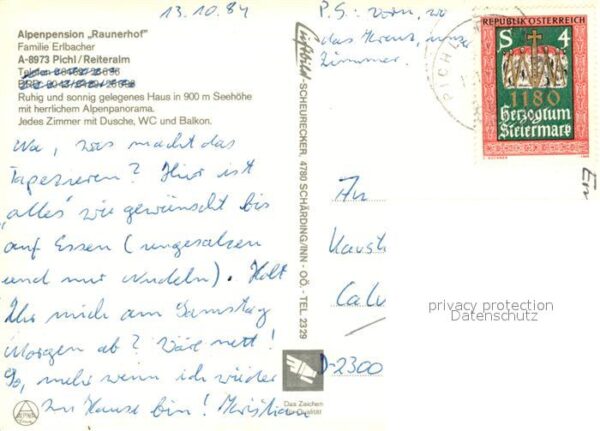 13.10.84
Alpenpension „Raunerhof"
Familie Erlbacher
A-8973 Pichl/Reiteralm
Ruhig und sonnig gelegenes Haus in 900 m Seehöhe
mit herrlichem Alpenpanorama.
Jedes Zimmer mit Dusche, WC und Balkon.
Na, was macht das
Tapezieren? Hier ist
„alles" wie gewünscht bis
auf Essen (ungesalzen
und nur Nudeln). Holt
Ihr mich am Samstag
Morgen ab? Wäre nett!
So, mehr wenn ich wieder
zu Hause bin!
P.S.: vorn, wo
das Kreuz, unser
Zimmer.
Luftbild-SCHEURECKER, 4780 SCHÄRDING/INN - OÖ. - TEL. 2329
REPUBLIK ÖSTERREICH
S 4
1180
Herzogtum
Steiermark
PICHL
An
D-2300
privacy protection
Datenschutz
Das Zeichen
der Qualität